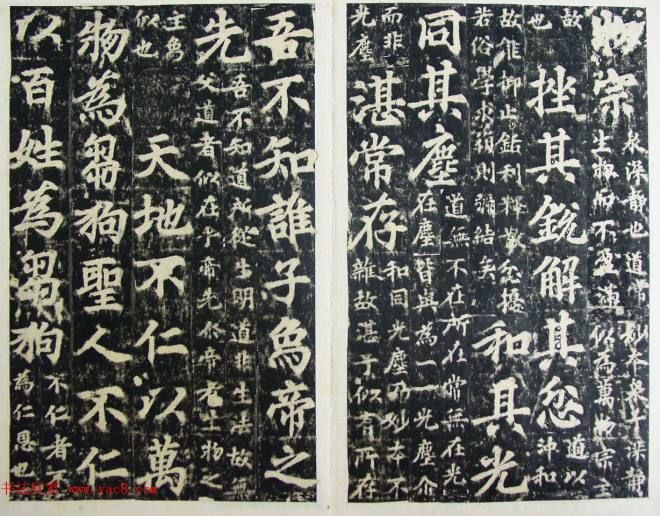 物宗
泉深静也道常妙本泉乎深静
生物而不盈滿似為萬物宗主
故也
挫其銳解其忿
道以
沖和
故能抑止銛利釋散忿擾
若俗學求復則彌結矣
和其光
同其塵
道無不在所在常無在光
在塵皆與為一一光塵尒
而非
光塵
湛常存
和同光塵而妙本不
雜故湛乎似有所存
吾不知誰子象帝之
先
吾不知道所從生明道非生法故無
父道者似在乎帝先尒帝者生物之
主象
似也
天地不仁以萬
物為芻狗聖人不仁
以百姓為芻狗
不仁者不
為仁恩也
书法欣赏
www.yac8.com